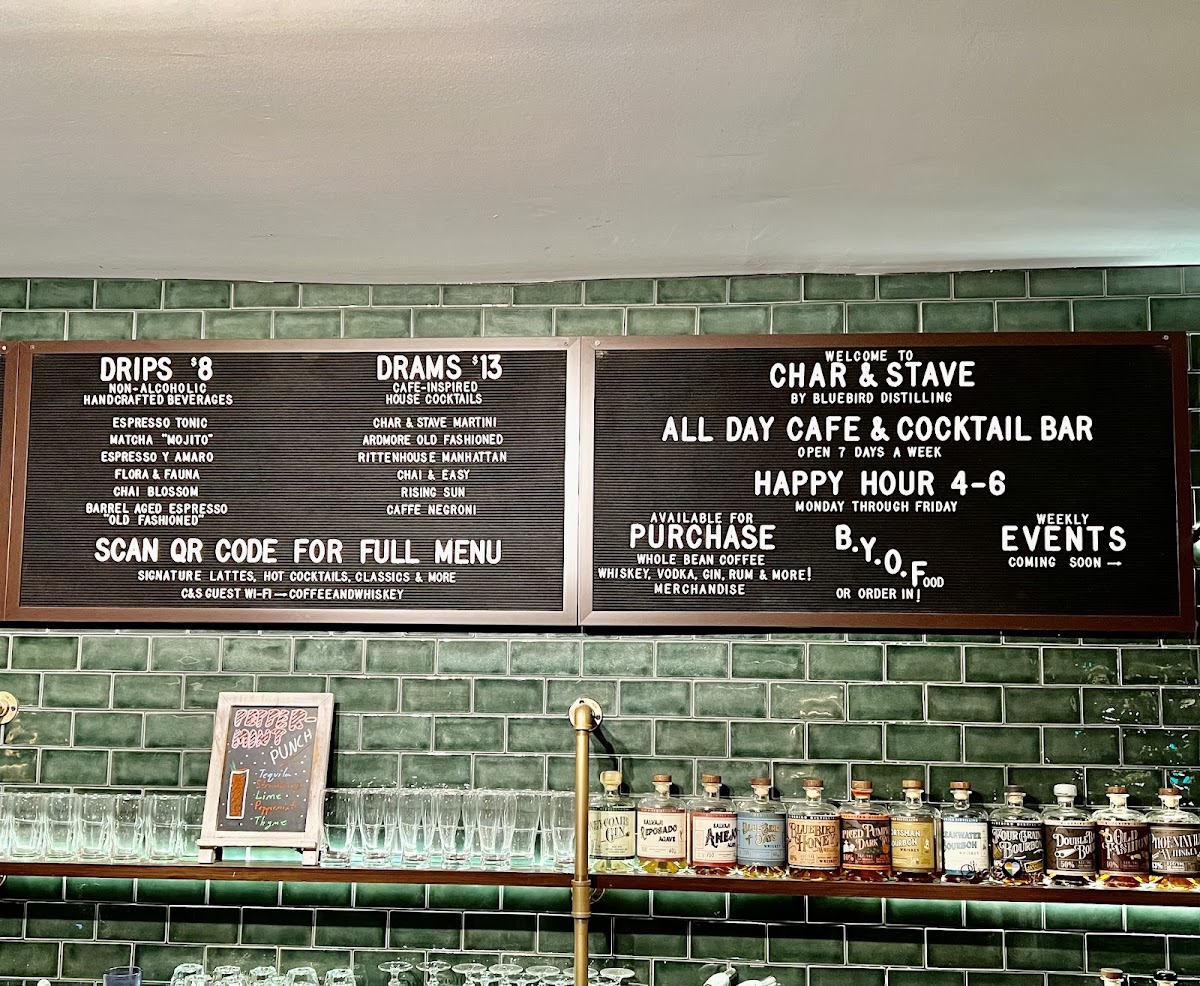 DRIPS $8
NON-ALCOHOLIC
HANDCRAFTED BEVERAGES
ESPRESSO TONIC
MATCHA "MOJITO"
ESPRESSO Y AMARO
FLORA & FAUNA
CHAI BLOSSOM
BARREL AGED ESPRESSO
"OLD FASHIONED"
DRAMS $13
CAFE-INSPIRED
HOUSE COCKTAILS
CHAR & STAVE MARTINI
ARDMORE OLD FASHIONED
RITTENHOUSE MANHATTAN
CHAI & EASY
RISING SUN
CAFFE NEGRONI
SCAN QR CODE FOR FULL MENU
SIGNATURE LATTES, HOT COCKTAILS, CLASSICS & MORE
C&S GUEST WI-FI → COFFEEANDWHISKEY
WELCOME TO
CHAR & STAVE
BY BLUEBIRD DISTILLING
ALL DAY CAFE & COCKTAIL BAR
OPEN 7 DAYS A WEEK
HAPPY HOUR 4-6
MONDAY THROUGH FRIDAY
AVAILABLE FOR
PURCHASE
WHOLE BEAN COFFEE
WHISKEY, VODKA, GIN, RUM & MORE!
MERCHANDISE
B.Y.O.FOOD
OR ORDER IN!
WEEKLY
EVENTS
COMING SOON →
PEPPER-
MINT
PUNCH
·Tequila·
Lime
·Peppermint·
·Thyme
GIN
REPOSADO
AGAVE
BLUEBIRD
HONEY
WHISKEY
DARK
BOURBON
BOURBON
FOUR GRAIN
BOURBON
DOUBLE
OLD
FASHIONED
PHOENIXVILLE